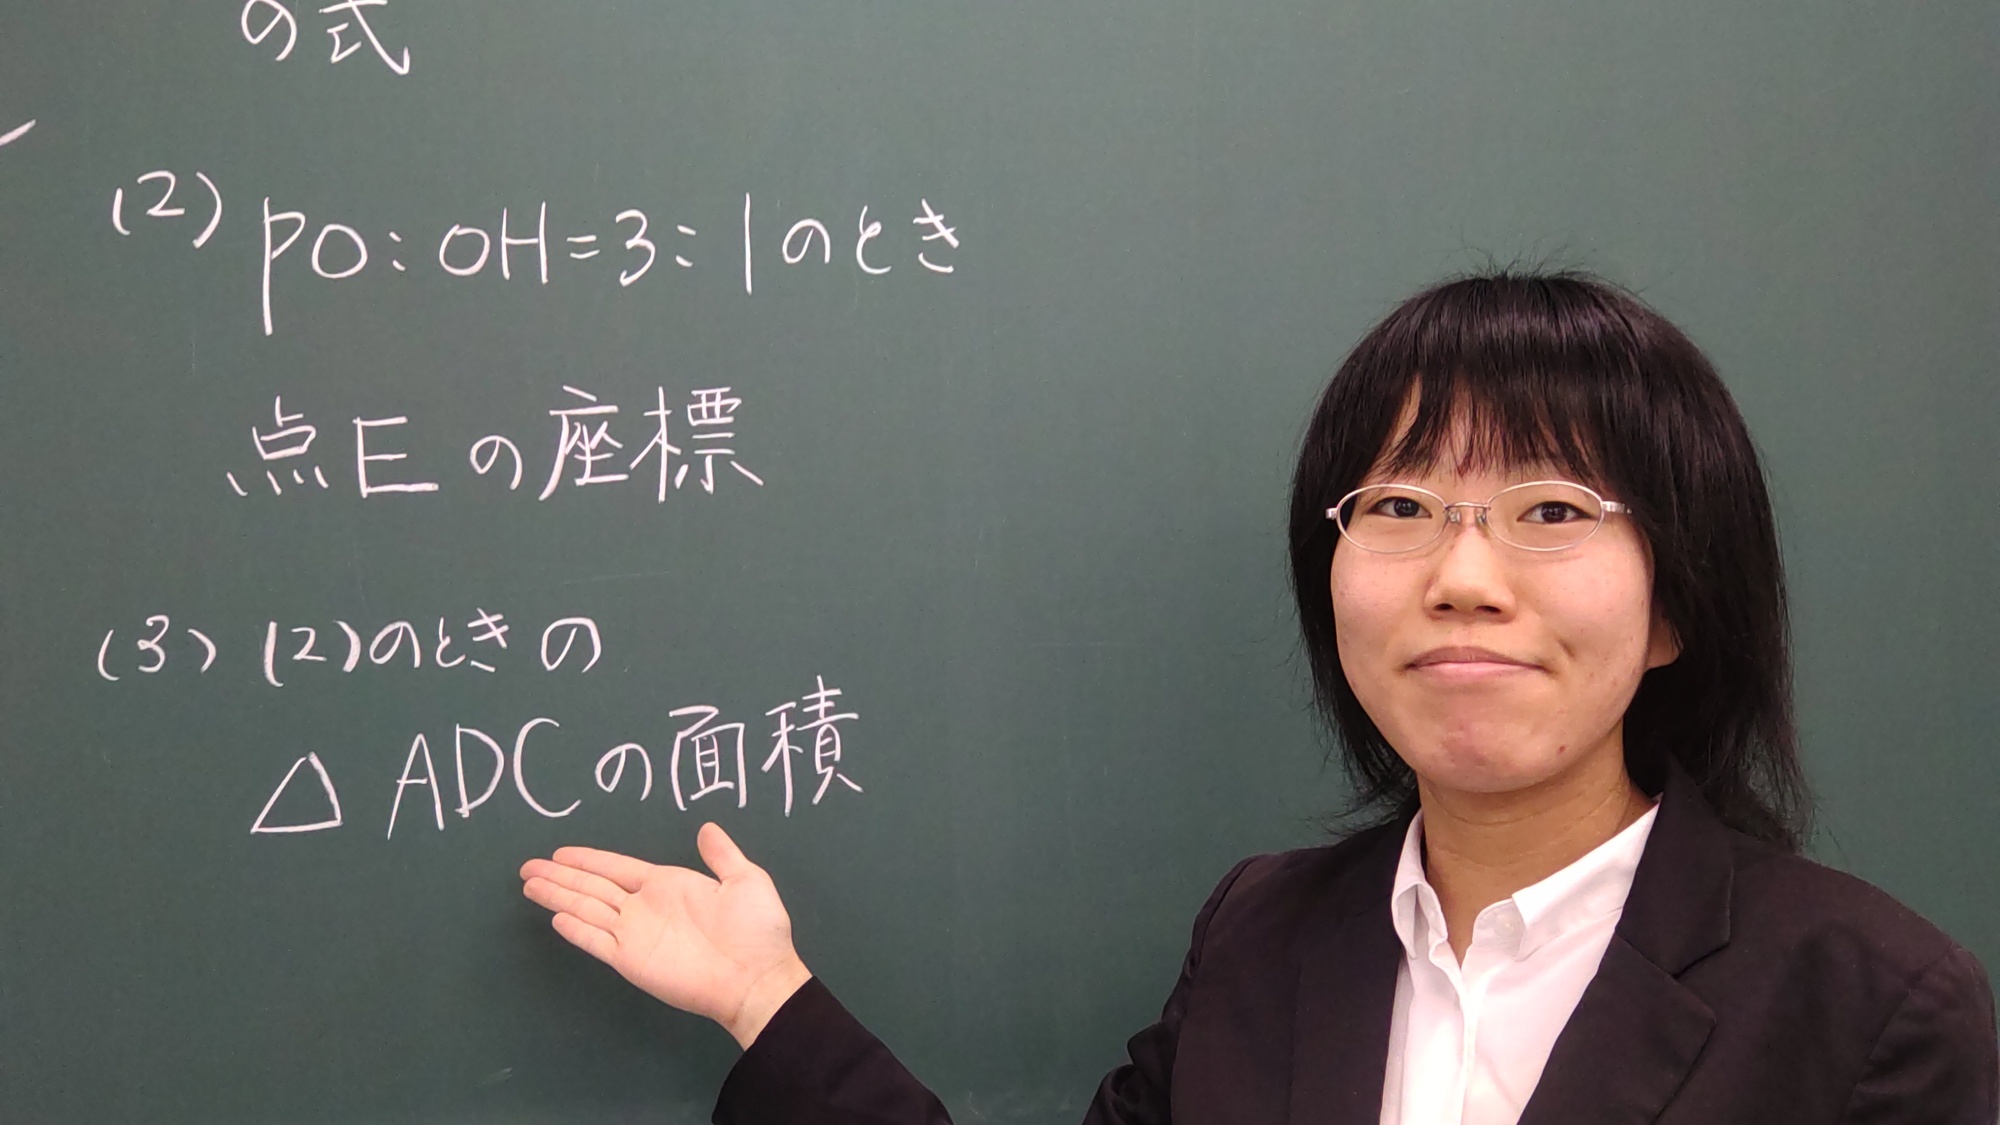 の式
(2) PO:OH=3:1のとき
点Eの座標
(3) (2)のときの
△ADCの面積